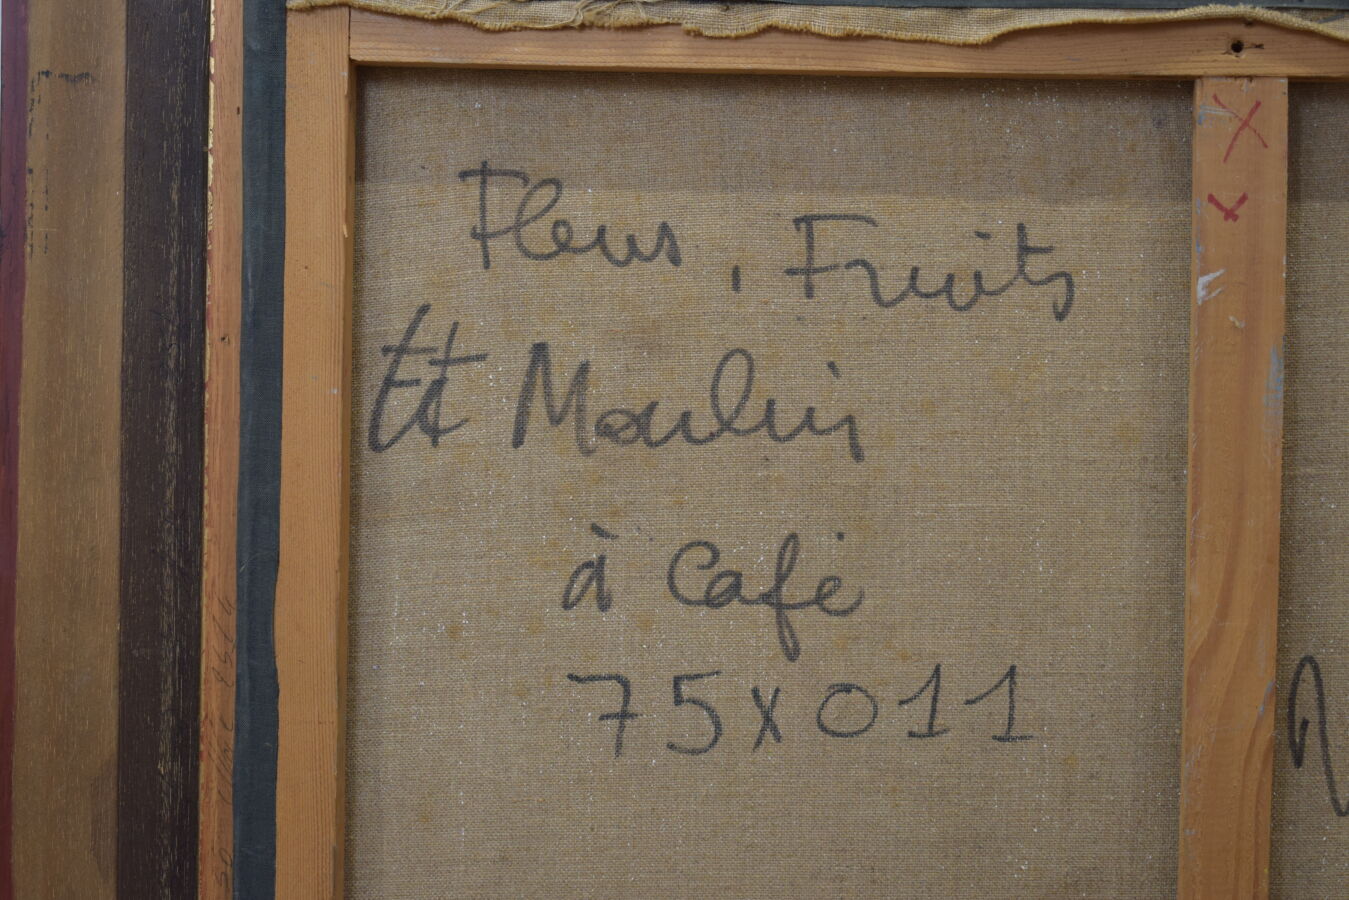 Fleurs, Fruits
Et Moulin
à Café
75x011